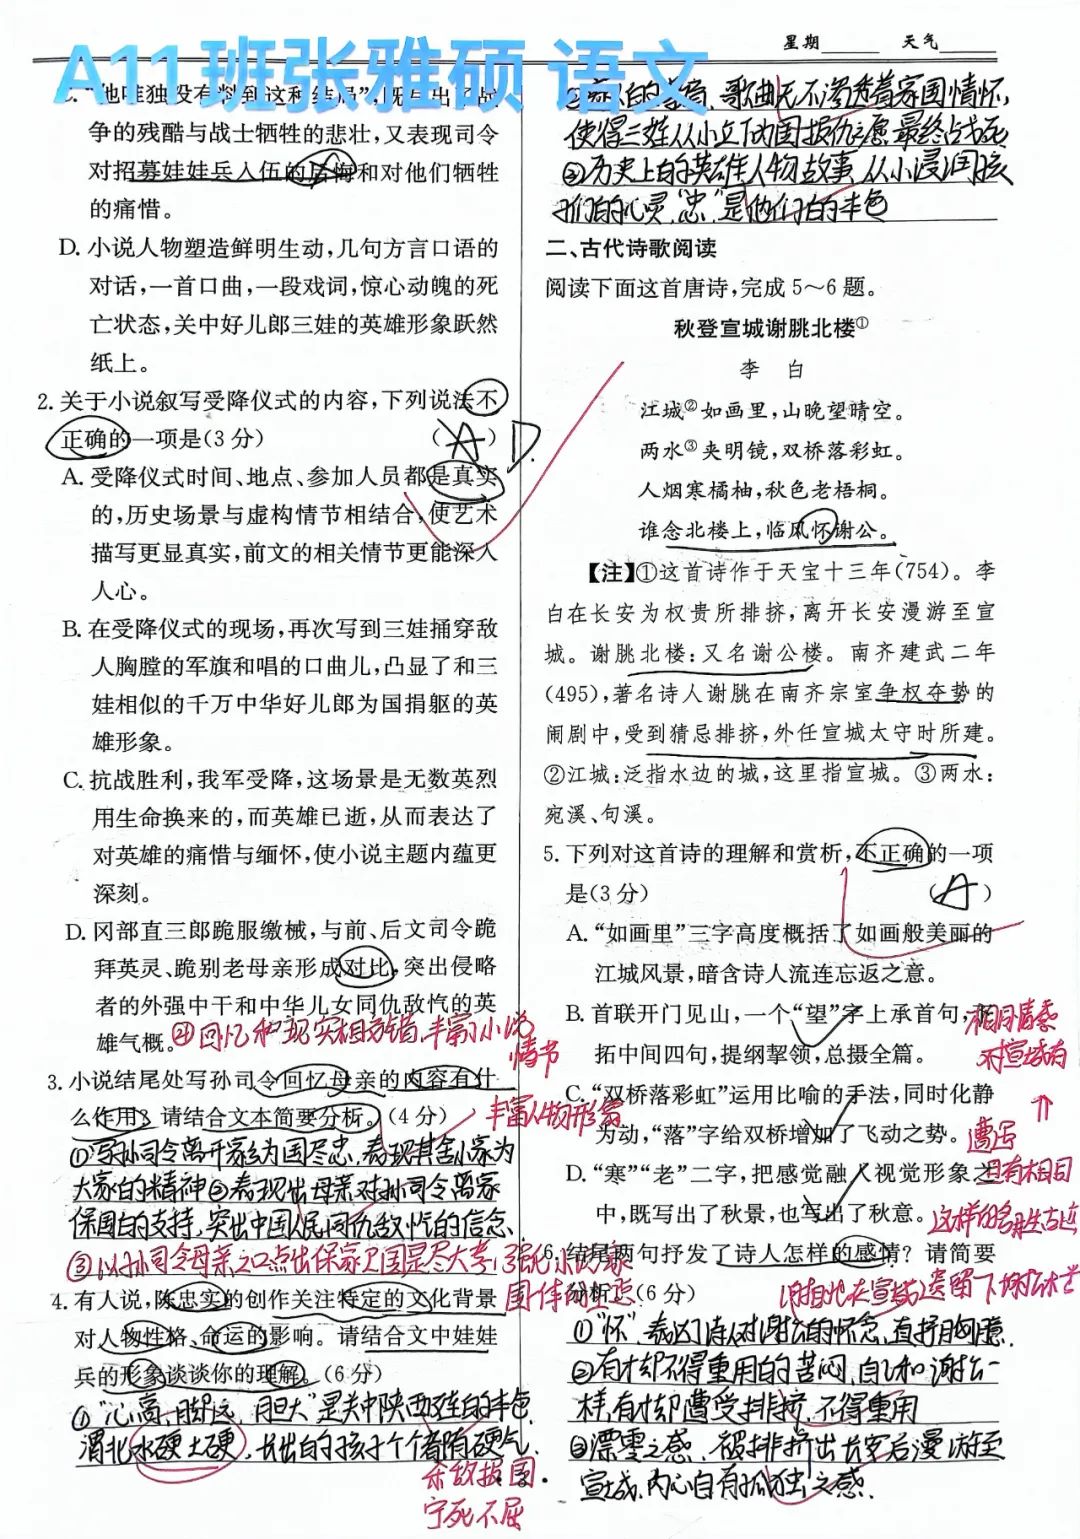 星期 天气
A11班张雅硕 语文
争的残酷与战士牺牲的悲壮，又表现司令
对招募娃娃兵入伍的后悔和对他们牺牲
的痛惜。
D. 小说人物塑造鲜明生动，几句方言口语的
对话，一首口曲，一段戏词，惊心动魄的死
亡状态，关中好儿郎三娃的英雄形象跃然
纸上。
2. 关于小说叙写受降仪式的内容，下列说法不
正确的一项是(3分) ( A ) D.
A. 受降仪式时间、地点、参加人员都是真实
的，历史场景与虚构情节相结合，使艺术
描写更显真实，前文的相关情节更能深入
人心。
B. 在受降仪式的现场，再次写到三娃捅穿敌
人胸膛的军旗和唱的口曲儿，凸显了和三
娃相似的千万中华好儿郎为国捐躯的英
雄形象。
C. 抗战胜利，我军受降，这场景是无数英烈
用生命换来的，而英雄已逝，从而表达了
对英雄的痛惜与缅怀，使小说主题内蕴更
深刻。
D. 冈部直三郎跪服缴械，与前、后文司令跪
拜英灵、跪别老母亲形成对比，突出侵略
者的外强中干和中华儿女同仇敌忾的英
雄气概。
④回忆和现实相交错，丰富小说
情节
3. 小说结尾处写孙司令回忆母亲的内容有什
么作用？请结合文本简要分析。(4分)
丰富人物形象
①写孙司令离开家乡为国尽忠，表现其舍小家为
大家的精神②表现出母亲对孙司令离家
保国的支持，突出中国人民同仇敌忾的信念.
③以孙司令母亲之口点出保家卫国是尽大孝，强化小说家
国情怀的主题
4. 有人说，陈忠实的创作关注特定的文化背景
对人物性格、命运的影响。请结合文中娃娃
兵的形象谈谈你的理解。(6分)
渭北水硬土硬，长出的孩子个个都有硬气.
杀敌报国
宁死不屈
· 2 ·
使得三娃从小立下为国报仇之愿，最终占战死
③历史上的英雄人物故事，从小浸润孩
子们的心灵，“忠”是他们的本色
二、古代诗歌阅读
阅读下面这首唐诗，完成5～6题。
秋登宣城谢朓北楼①
李 白
江城②如画里，山晚望晴空。
两水③夹明镜，双桥落彩虹。
人烟寒橘柚，秋色老梧桐。
谁念北楼上，临风怀谢公。
【注】①这首诗作于天宝十三年(754)。李
白在长安为权贵所排挤，离开长安漫游至宣
城。谢朓北楼：又名谢公楼。南齐建武二年
(495)，著名诗人谢朓在南齐宗室争权夺势的
闹剧中，受到猜忌排挤，外任宣城太守时所建。
②江城：泛指水边的城，这里指宣城。③两水：
宛溪、句溪。
5. 下列对这首诗的理解和赏析，不正确的一项
是(3分) ( A )
A. “如画里”三字高度概括了如画般美丽的
江城风景，暗含诗人流连忘返之意。
B. 首联开门见山，一个“望”字上承首句，开
拓中间四句，提纲挈领，总摄全篇。
C. “双桥落彩虹”运用比喻的手法，同时化静
为动，“落”字给双桥增加了飞动之势。
D. “寒”“老”二字，把感觉融入视觉形象之
中，既写出了秋景，也写出了秋意。
6. 结尾两句抒发了诗人怎样的感情？请简要
分析。(6分)
①“怀”，表达了诗人对谢公的怀念，直抒胸臆.
②有才却不得重用的苦闷，自己和谢公一
样，有才却遭受排挤，不得重用
③漂零之感，被排挤出长安后漫游至
宣城，内心自有孤独之感.